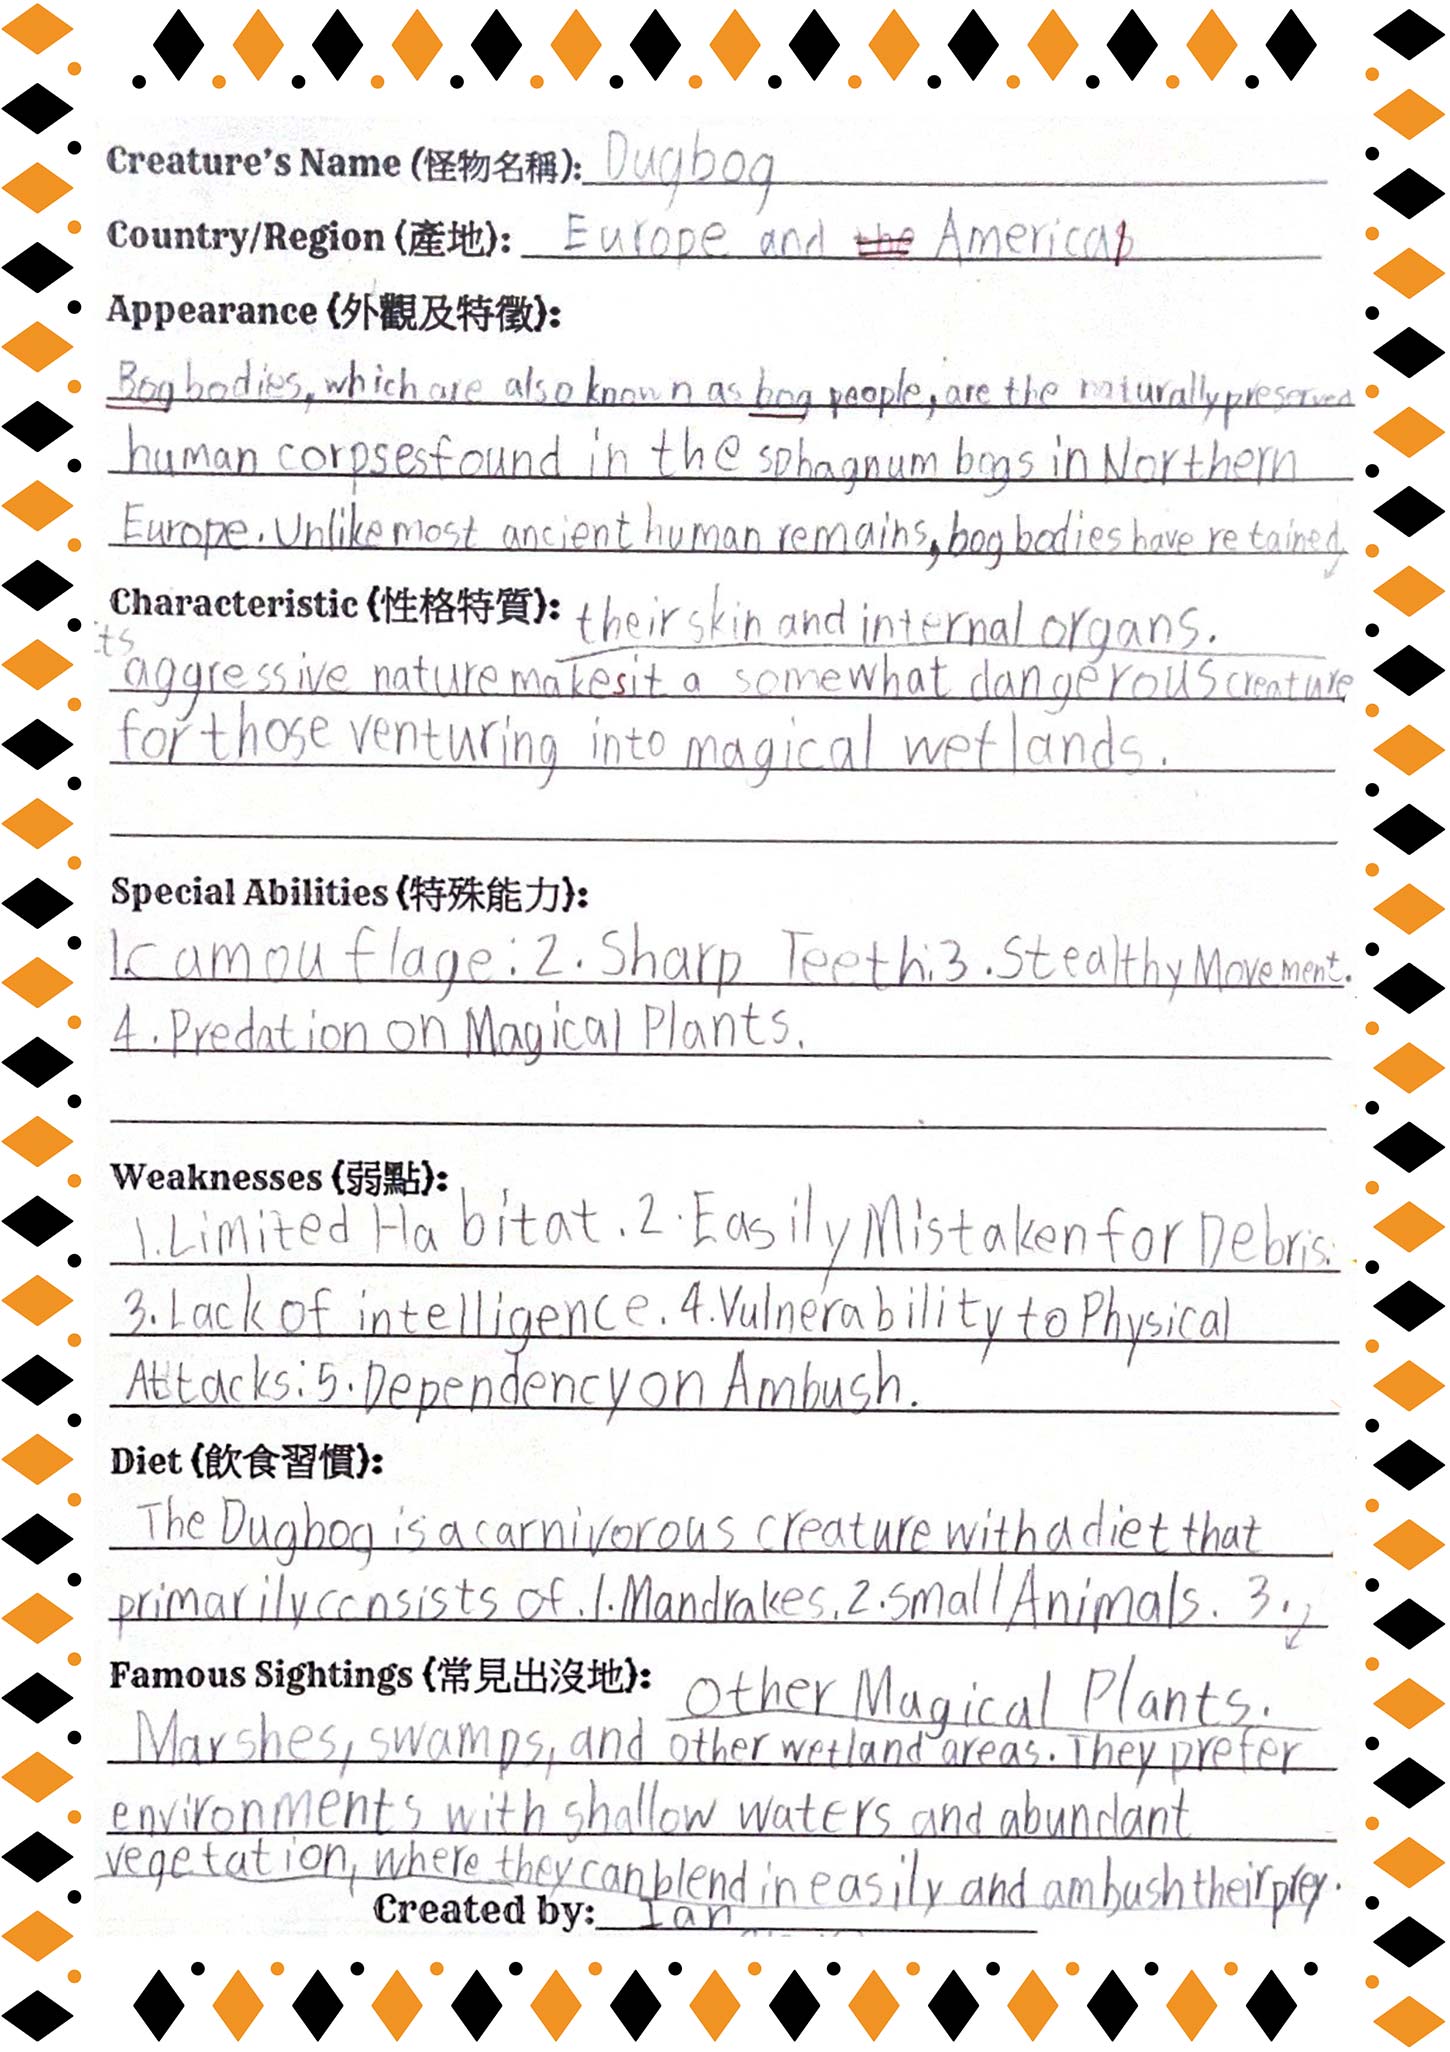 Creature's Name (怪物名稱): Dugbog
Country/Region (產地): Europe and the Americas
Appearance (外觀及特徵):
Bog bodies, which are also known as bog people, are the naturally preserved
human corpses found in the sphagnum bogs in Northern
Europe. Unlike most ancient human remains, bog bodies have retained
Characteristic (性格特質): their skin and internal organs.
Its
aggressive nature makes it a somewhat dangerous creature
for those venturing into magical wetlands.
Special Abilities (特殊能力):
1. camouflage: 2. Sharp Teeth: 3. Stealthy Movement.
4. Predation on Magical Plants.
Weaknesses (弱點):
1. Limited Habitat. 2. Easily Mistaken for Debris:
3. Lack of intelligence. 4. Vulnerability to Physical
Attacks: 5. Dependency on Ambush.
Diet (飲食習慣):
The Dugbog is a carnivorous creature with a diet that
primarily consists of. 1. Mandrakes. 2. small Animals. 3.
Famous Sightings (常見出沒地): other Magical Plants.
Marshes, swamps, and other wetland areas. They prefer
environments with shallow waters and abundant
vegetation, where they can blend in easily and ambush their prey.
Created by: Ian